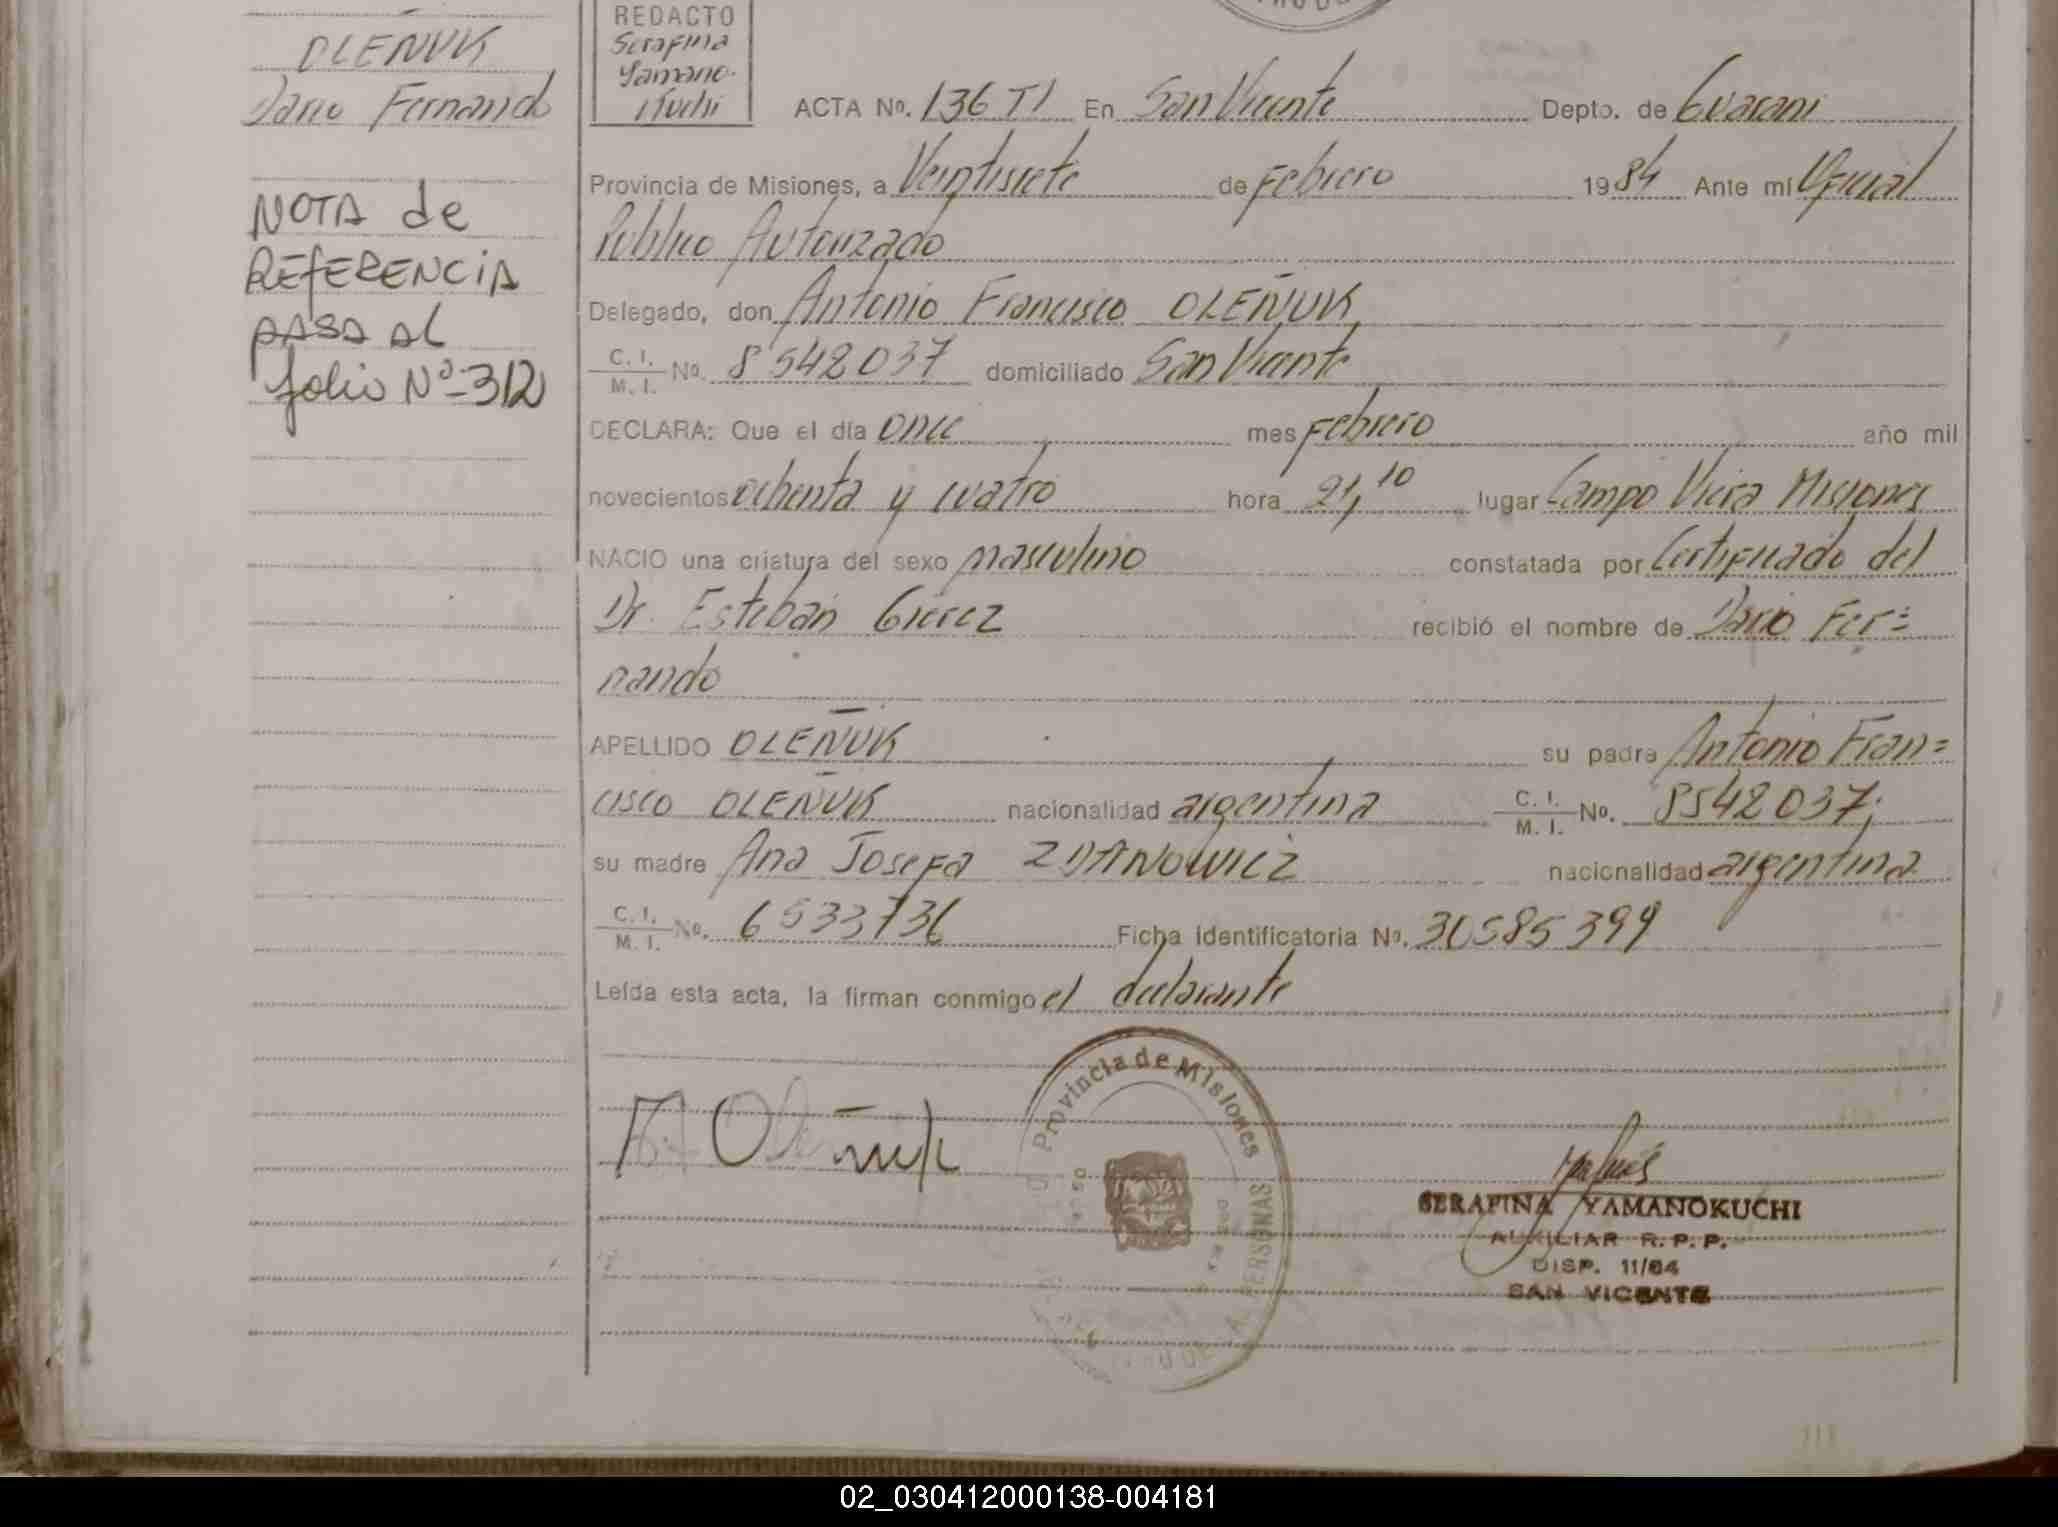 OLEÑUK
Dario Fernando
NOTA de
REFERENCIA
PASA AL
folio Nº-312
REDACTO
Serafina
Yamano-
Kuchi
ACTA Nº. 136 TI En San Vicente Depto. de Guarani
Provincia de Misiones, a Veintisiete de Febrero 1984 Ante mí Oficial
Publico Autorizado
Delegado, don Antonio Francisco OLEÑUK
C. I. / M. I. Nº. 8542037 domiciliado San Vicente
DECLARA: Que el día once mes Febrero año mil
novecientos ochenta y cuatro hora 21,10 lugar Campo Viera Misiones
NACIO una criatura del sexo masculino constatada por Certificado del
Dr. Esteban Gierez recibió el nombre de Dario Fer=
nando
APELLIDO OLEÑUK su padre Antonio Fran=
cisco OLEÑUK nacionalidad argentina C. I. / M. I. Nº. 8542037;
su madre Ana Josefa ZDANOWICZ nacionalidad argentina
C. I. / M. I. Nº. 6533736 Ficha Identificatoria Nº. 30585399
Leída esta acta, la firman conmigo el declarante
Provincia de Misiones
PERSONAS
SERAFINA YAMANOKUCHI
AUXILIAR R. P. P.
DISP. 11/84
SAN VICENTE
02_030412000138-004181